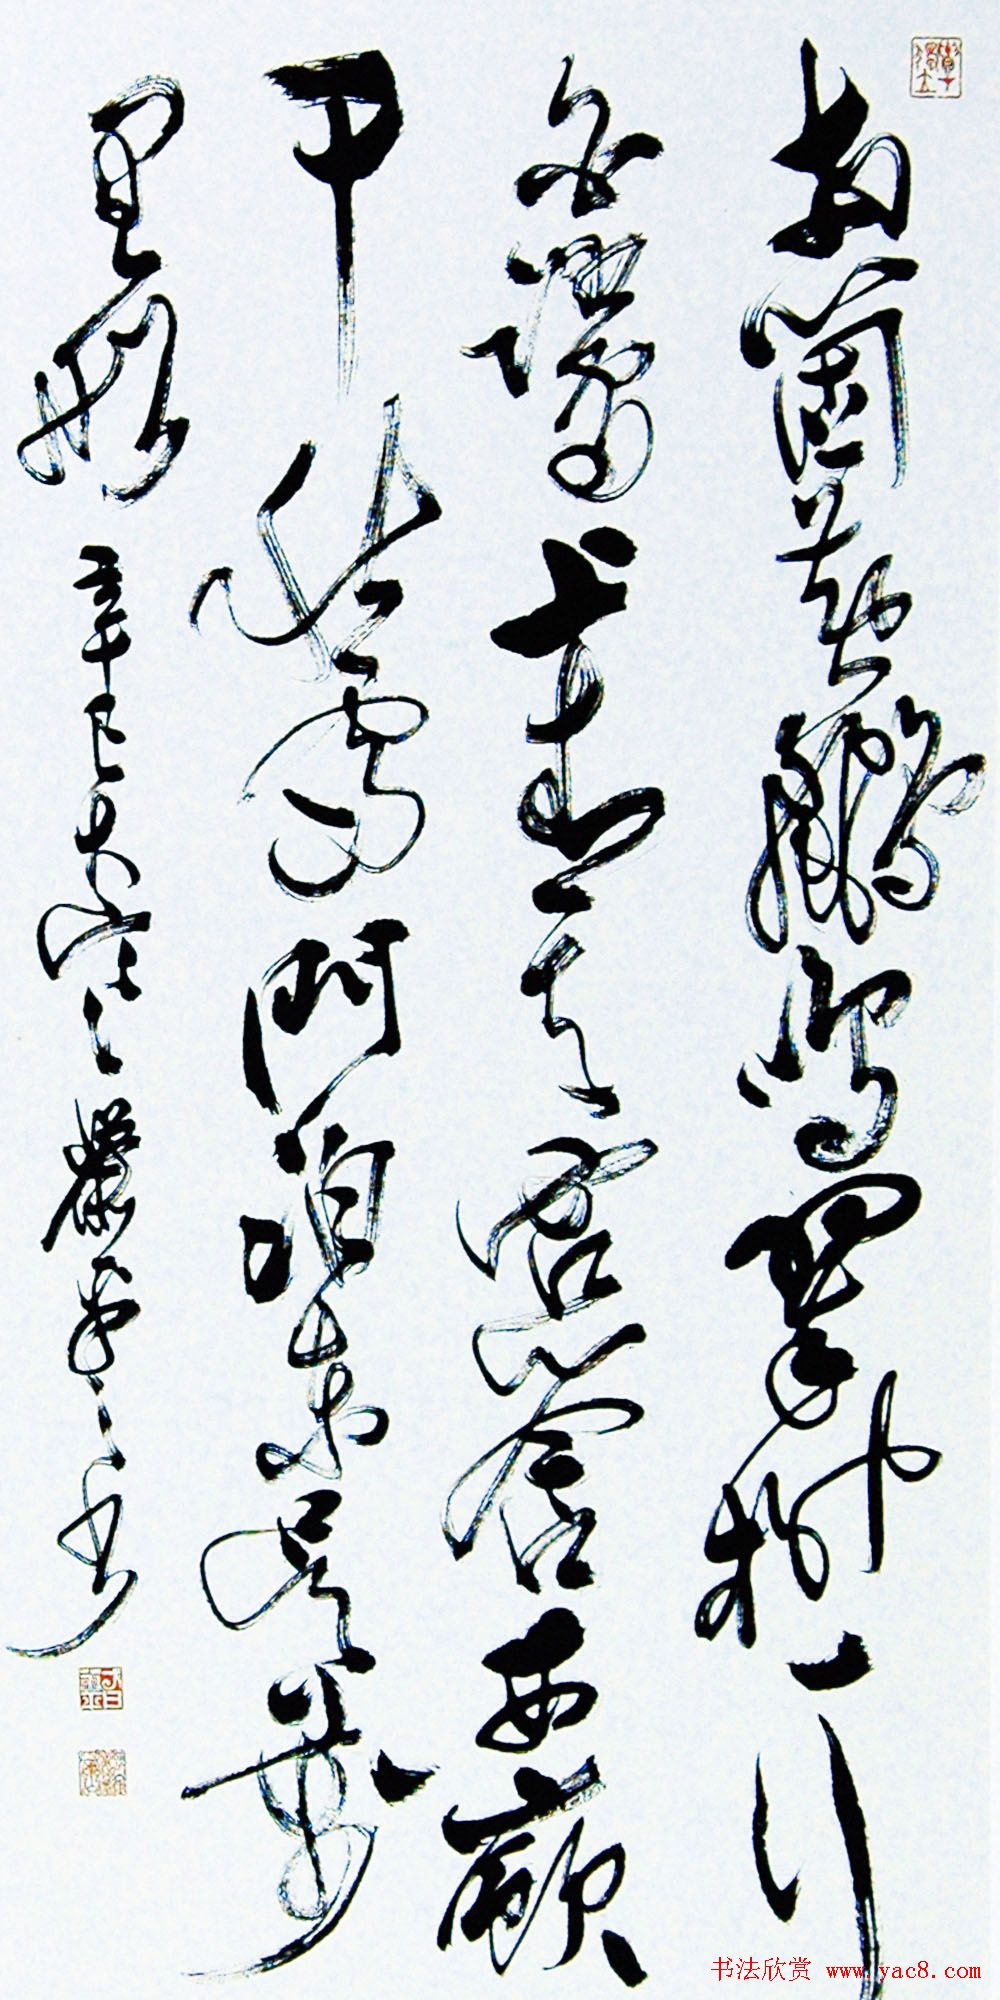 两个黄鹂鸣翠柳一行
白鹭上青天窗含西岭
千秋雪门泊东吴万
里船 辛巳大寒 严太平书
书法欣赏 www.yac8.com